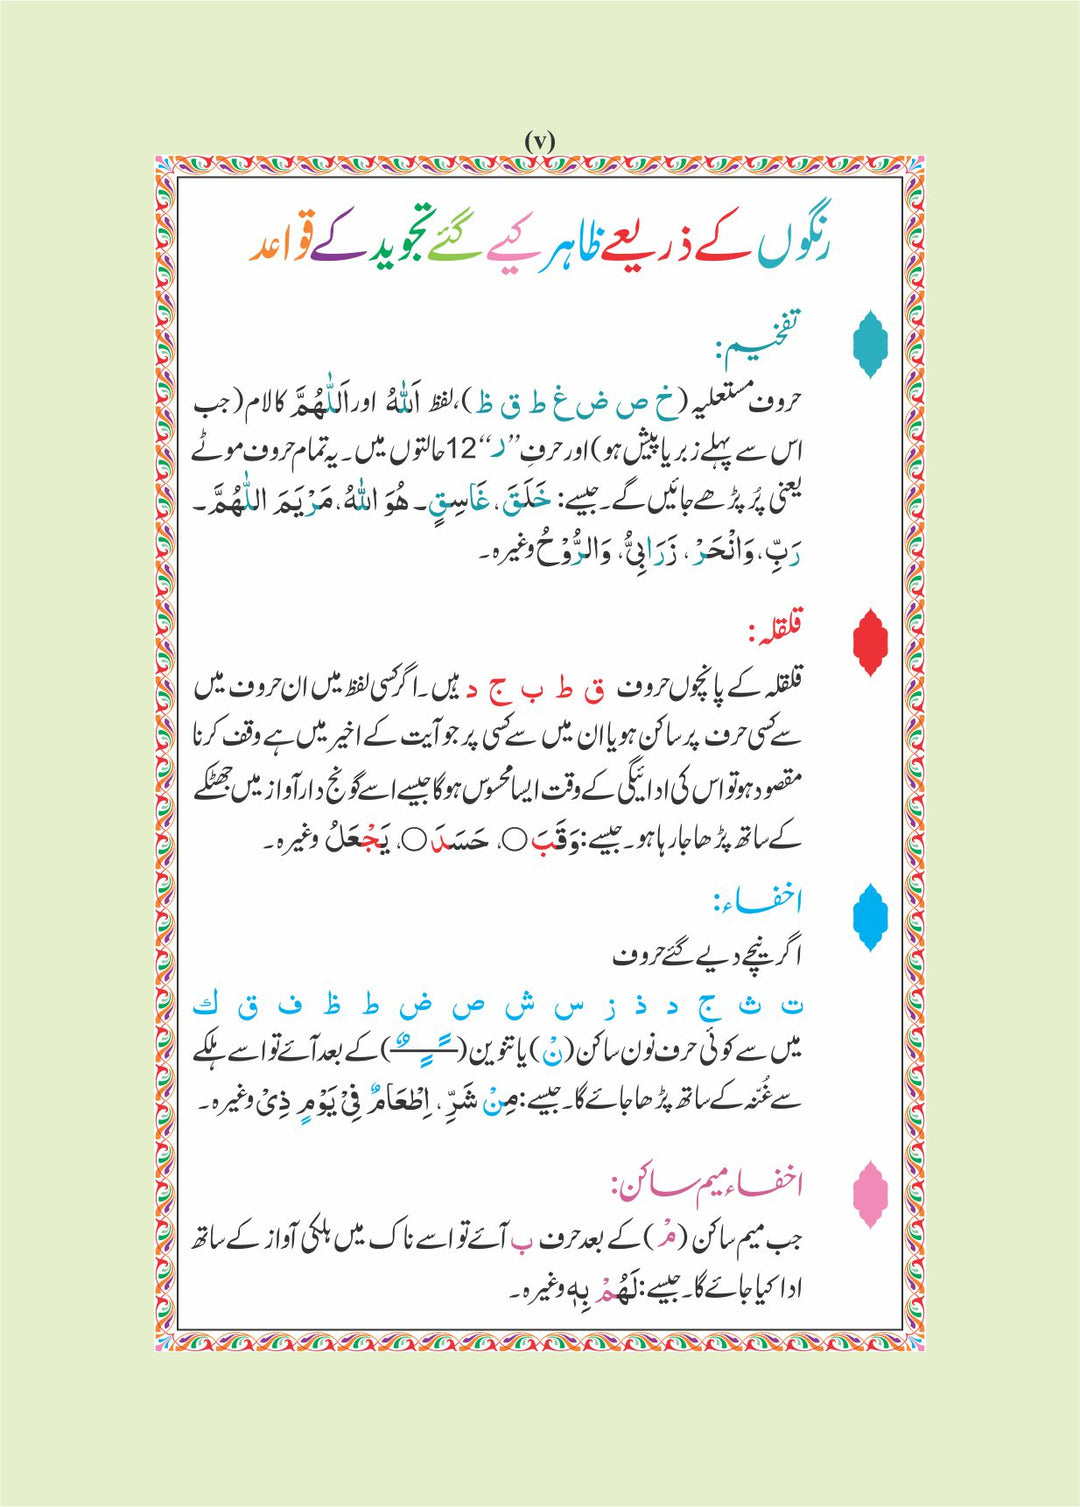 (v)
رنگوں کے ذریعے ظاہر کیے گئے تجوید کے قواعد
تفخیم:
حروف مستعلیہ (خ ص ض غ ط ق ظ)، لفظ اَللّٰهُ اور اَللّٰهُمَّ کا لام (جب
اس سے پہلے زبر یا پیش ہو) اور حرفِ ’’ر‘‘ 12 حالتوں میں۔ یہ تمام حروف موٹے
یعنی پُر پڑھے جائیں گے۔ جیسے: خَلَقَ، غَاسِقٍ۔ هُوَ اللّٰهُ، مَرْيَمَ اللّٰهُمَّ۔
رَبِّ، وَانْحَرْ، زَرَابِیُّ، وَالرُّوْحُ وغیرہ۔
قلقلہ:
قلقلہ کے پانچوں حروف ق ط ب ج د ہیں۔ اگر کسی لفظ میں ان حروف میں
سے کسی حرف پر ساکن ہو یا ان میں سے کسی پر جو آیت کے اخیر میں ہے وقف کرنا
مقصود ہو تو اس کی ادائیگی کے وقت ایسا محسوس ہوگا جیسے اسے گونج دار آواز میں جھٹکے
کے ساتھ پڑھا جا رہا ہو۔ جیسے: وَقَبَ ○، حَسَدَ ○، يَجْعَلُ وغیرہ۔
اخفاء:
اگر نیچے دیے گئے حروف
ت ث ج د ذ ز س ش ص ض ط ظ ف ق ك
میں سے کوئی حرف نون ساکن (نْ) یا تنوین (ـًـٍـٌ) کے بعد آئے تو اسے ہلکے
سے غُنّہ کے ساتھ پڑھا جائے گا۔ جیسے: مِنْ شَرِّ، اِطْعَامٌ فِیْ يَوْمٍ ذِیْ وغیرہ۔
اخفاء میم ساکن:
جب میم ساکن (مْ) کے بعد حرف ب آئے تو اسے ناک میں ہلکی آواز کے ساتھ
ادا کیا جائے گا۔ جیسے: لَهُمْ بِهٖ وغیرہ۔